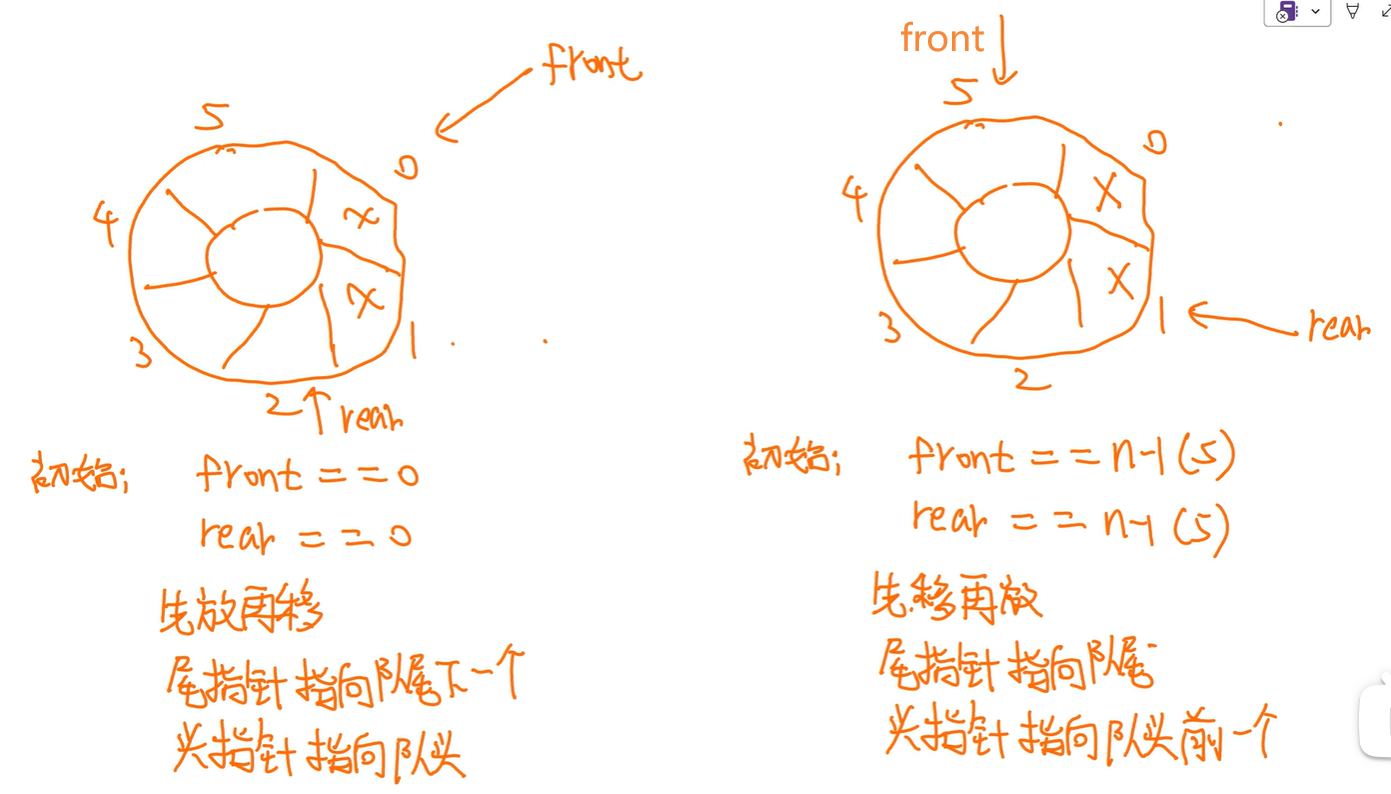 front
5
0
4
3
1
2
rear
初始:
front == 0
rear == 0
先放再移
尾指针指向队尾下一个
头指针指向队头
front
5
0
4
3
1
rear
2
初始:
front == n-1(5)
rear == n-1(5)
先移再放
尾指针指向队尾
头指针指向队头前一个